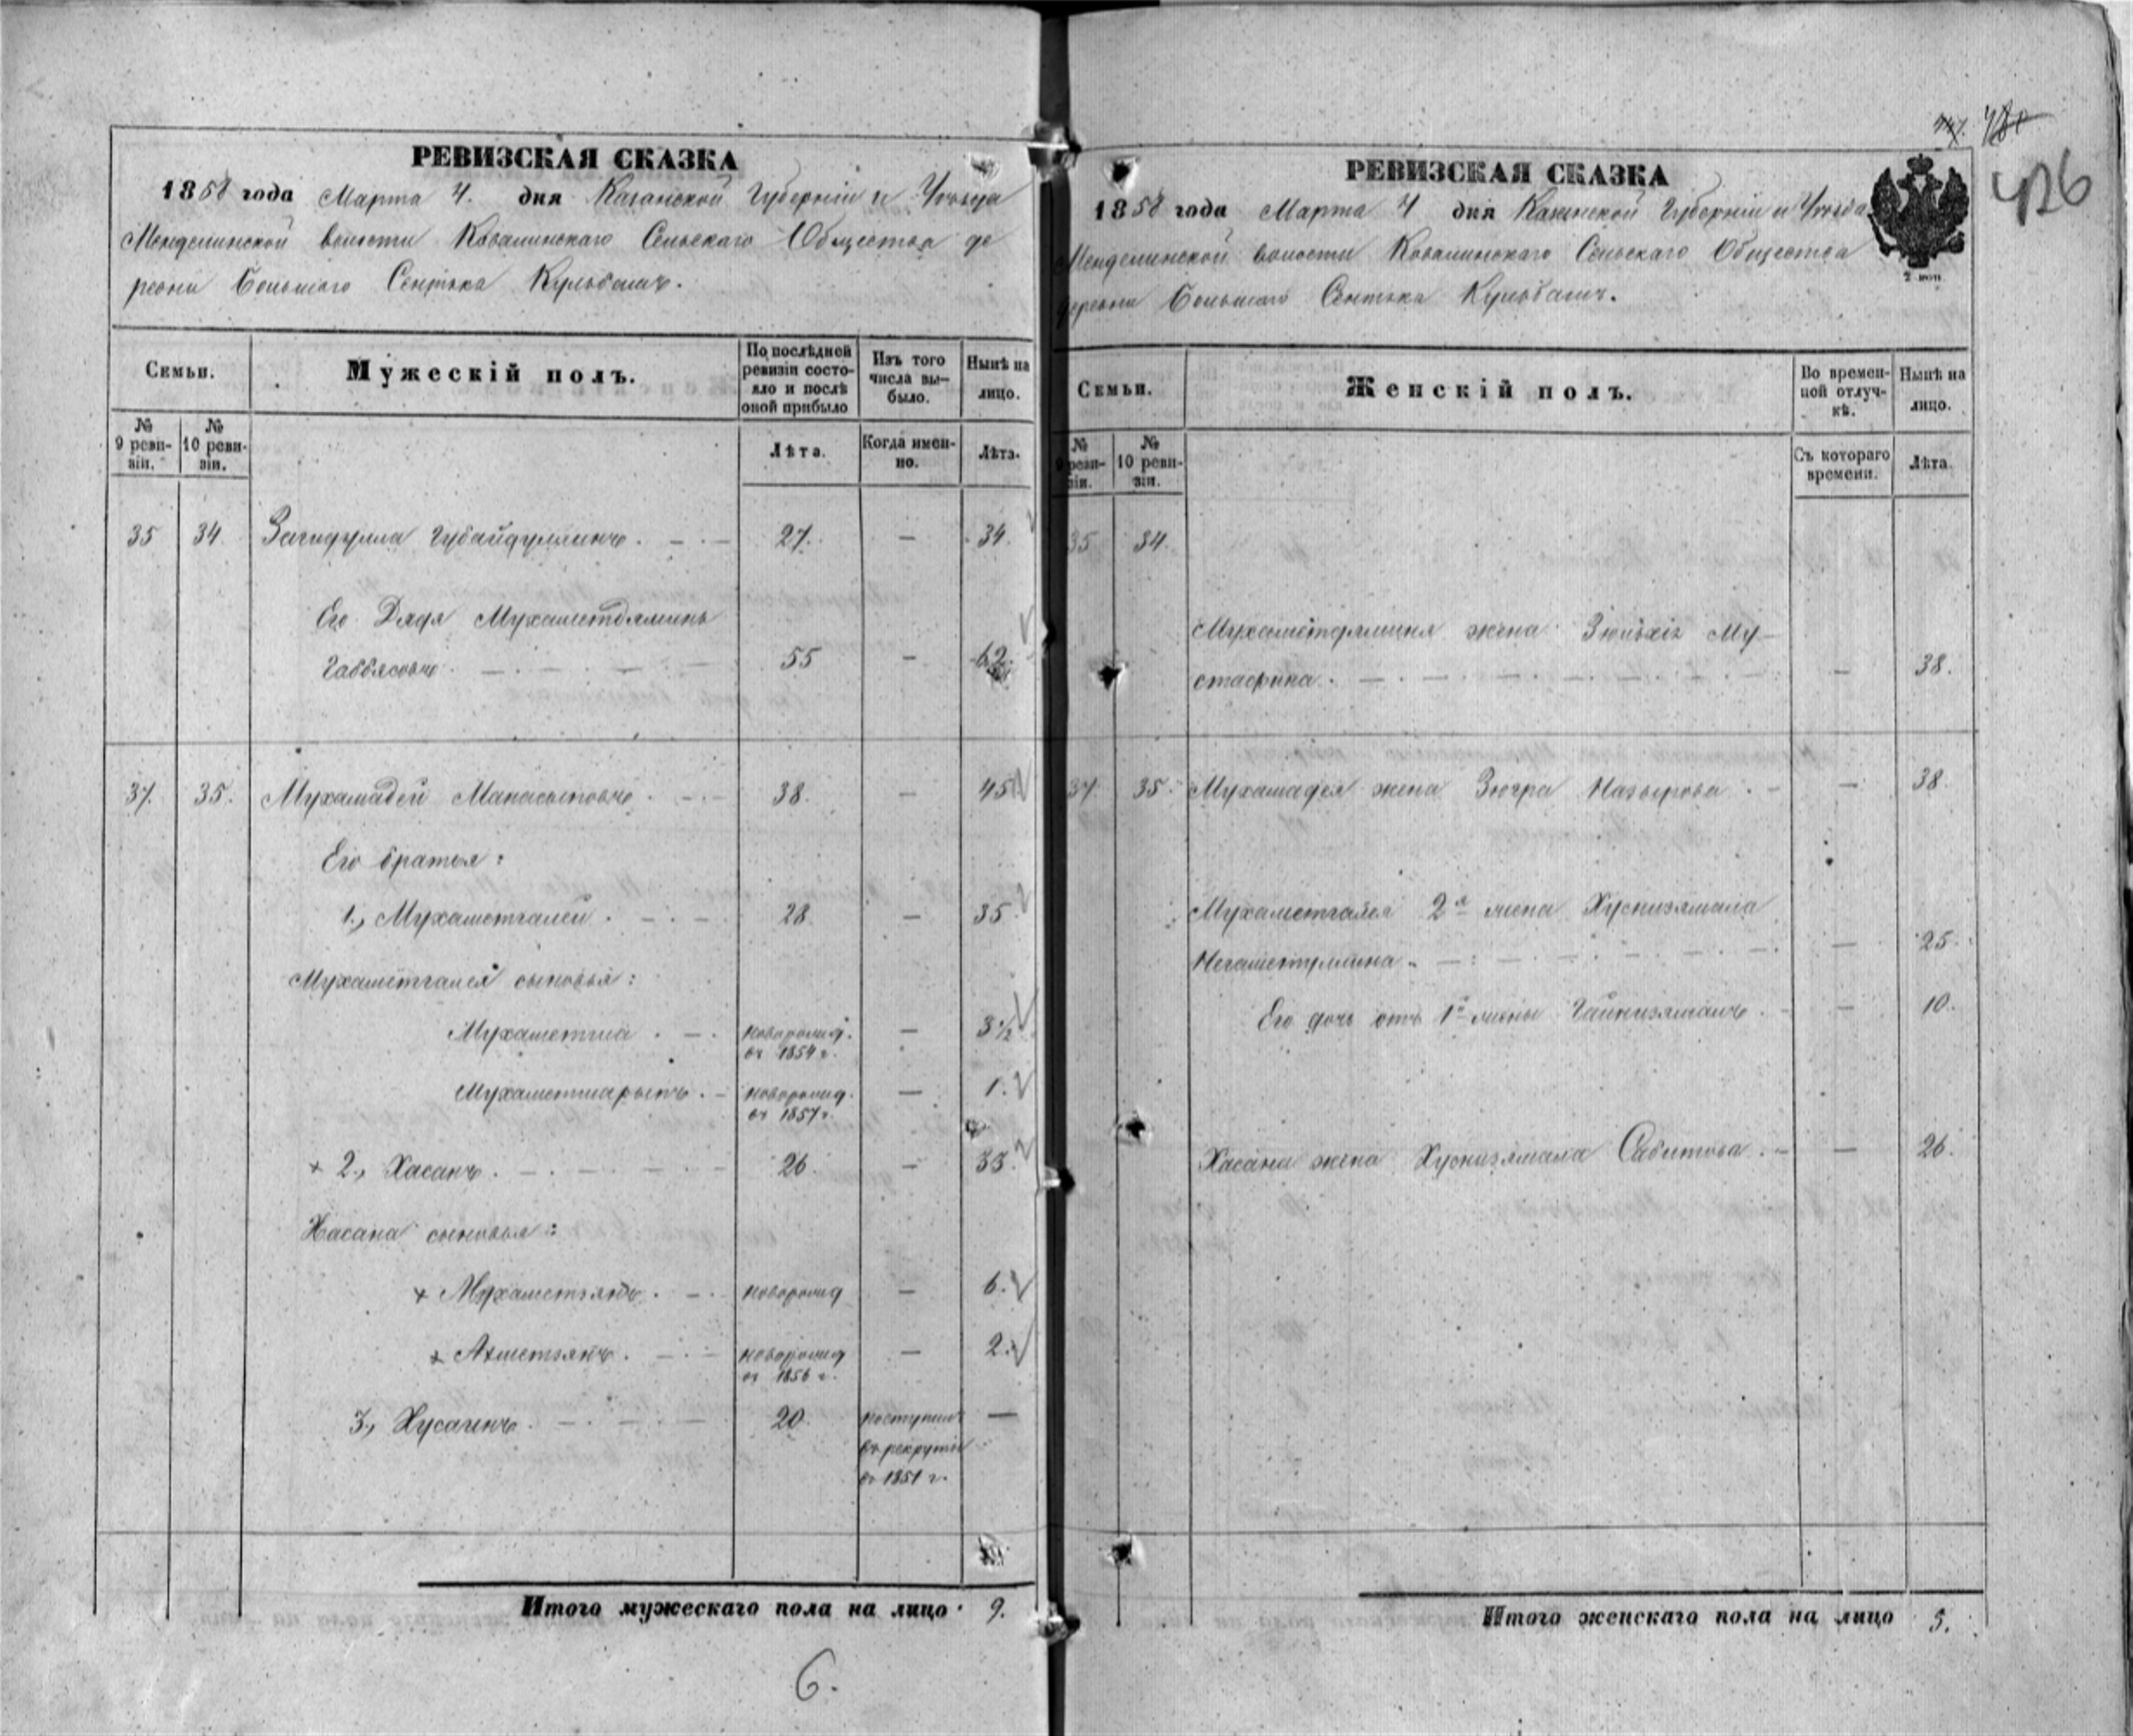 РЕВИЗСКАЯ СКАЗКА
1858 года Марта 4. дня Казанской Губерніи и Уѣзда
Менделинской волости Ковалинскаго Сельскаго Общества де
ревни Большаго Сентяка Кульбашъ.
Семьи.
Мужескій полъ.
По послѣдней ревизіи состо-
яло и послѣ
оной прибыло
Изъ того
числа вы-
было.
Нынѣ на
лицо.
№
9 реви-
зіи.
№
10 реви-
зіи.
Лѣта.
Когда имен-
но.
Лѣта.
35 34 Загидулла Губайдуллинъ. 27. — 34.
Его Дядя Мухаметдяминъ
Габбясовъ. 55 — 62.
37. 35. Мухамадей Манасыповъ. 38. — 45
Его братья:
1., Мухаметгалей. 28. — 35.
Мухаметгалея сыновья:
Мухаметша. новорожд. — 3½
въ 1854 г.
Мухаметшарыпъ. новорожд. — 1.
въ 1857 г.
+ 2., Хасанъ. 26. — 33.
Хасана сыновья:
+ Мухаметзянъ. новорожд — 6.
+ Ахметзянъ. новорожд — 2.
въ 1856 г.
3., Хусаинъ. 20. поступилъ —
въ рекруты
въ 1851 г.
Итого мужескаго пола на лицо 9.
6.
426
РЕВИЗСКАЯ СКАЗКА
1858 года Марта 4 дня Казанской Губерніи и Уѣзда
Менделинской волости Ковалинскаго Сельскаго Общества
деревни Большаго Сентяка Кульбашъ.
2 коп
Семьи.
Женскій полъ.
Во времен-
ной отлуч-
кѣ.
Нынѣ на
лицо.
№
9 реви-
зіи.
№
10 реви-
зіи.
Съ котораго
времени.
Лѣта.
35 34.
Мухаметдяминя жена Зюльхія Му-
стафина. — 38.
37. 35. Мухамадея жена Зюгра Назырова. — 38.
Мухаметгалея 2я жена Хуснизямала
Негаметуллина. — 25.
Его дочь отъ 1й жены Гайнизямалъ. — 10.
Хасана жена Хуснизямала Сабитова. — 26.
Итого женскаго пола на лицо 5.